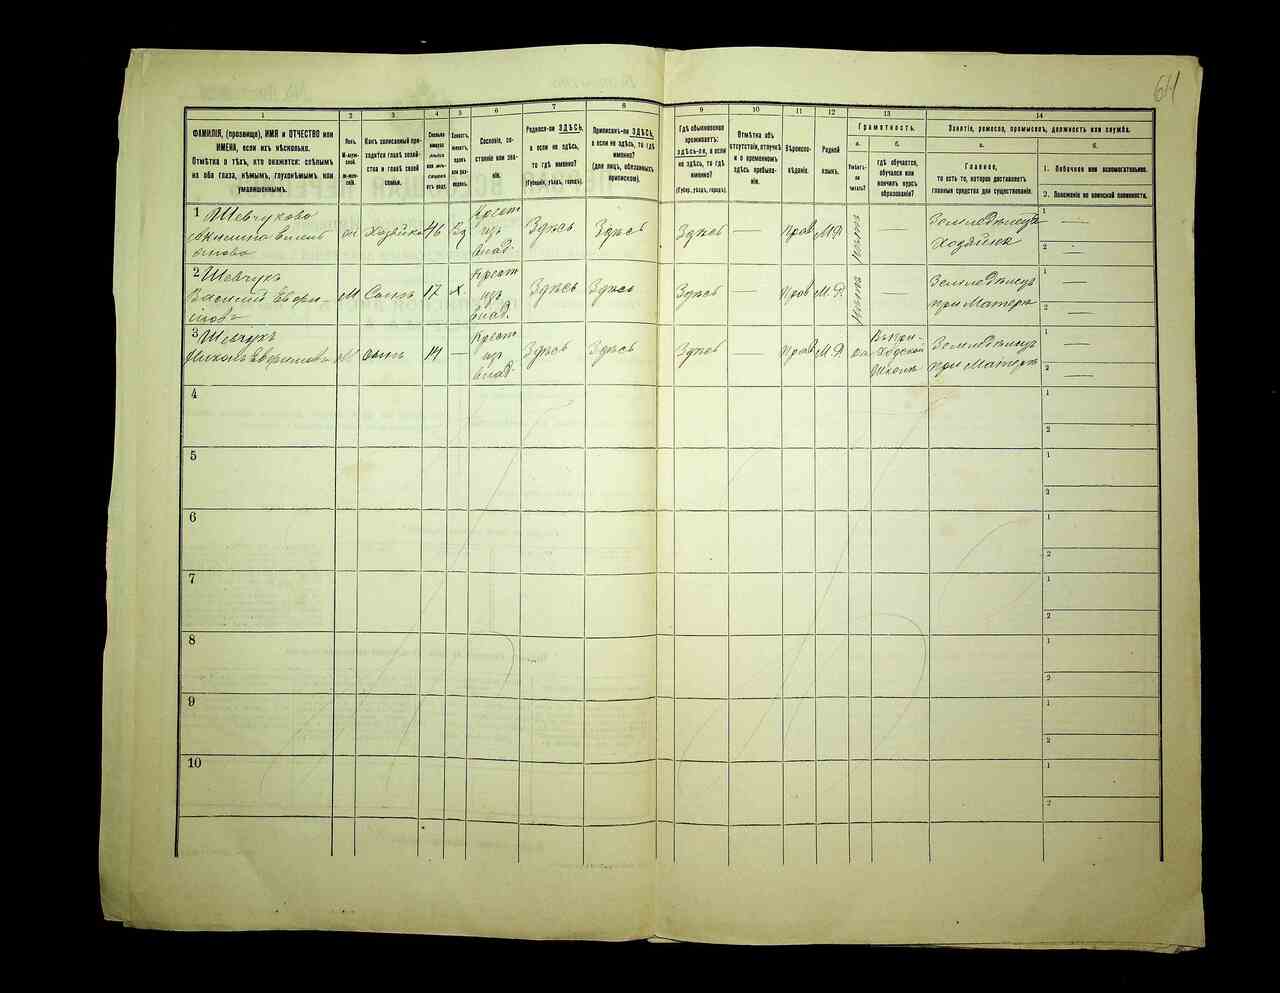 64
1
2
3
4
5
6
7
8
9
10
11
12
13
14
ФАМИЛІЯ, (прозвище), ИМЯ и ОТЧЕСТВО или
ИМЕНА, если ихъ нѣсколько.
Отмѣтка о тѣхъ, кто окажется: слѣпымъ
на оба глаза, нѣмымъ, глухонѣмымъ или
умалишеннымъ.
Полъ.
М-муж-
ской.
Ж-жен-
скій.
Какъ записанный при-
ходится главѣ хозяй-
ства и главѣ своей
семьи.
Сколько
минуло
лѣтъ
или мѣ-
сяцевъ
отъ роду.
Холостъ,
женатъ,
вдовъ
или раз-
веденъ.
Сословіе, со-
стояніе или зва-
ніе.
Родился-ли ЗДѢСЬ,
а если не здѣсь,
то гдѣ именно?
(Губернія, уѣздъ, городъ).
Приписанъ-ли ЗДѢСЬ,
а если не здѣсь, то гдѣ
именно?
(для лицъ, обязанныхъ
припискою).
Гдѣ обыкновенно
проживаетъ:
здѣсь-ли, а если
не здѣсь, то гдѣ
именно?
(Губер., уѣздъ, городъ).
Отмѣтка объ
отсутствіи, отлучкѣ
и о временномъ
здѣсь пребыва-
ніи.
Вѣроиспо-
вѣданіе.
Родной
языкъ.
Грамотность.
а.
б.
Умѣетъ-
ли
читать?
гдѣ обучается,
обучался или
кончилъ курсъ
образованія?
Занятіе, ремесло, промыселъ, должность или служба.
а.
б.
Главное,
то есть то, которое доставляетъ
главныя средства для существованія.
1. Побочное или вспомогательное.
2. Положеніе по воинской повинности.
1 Шевчукова
хозяйка 46 Вд Крест изъ влад. Здѣсь Здѣсь Здѣсь — Прав М.Р. нѣтъ — Земледѣлецъ Хозяйка 1 — 2 —
2 Шевчукъ
Василій
М Сынъ 17 х. Крест изъ влад. Здѣсь Здѣсь Здѣсь — Прав М.Р. нѣтъ — Земледѣлецъ при Матери 1 — 2 —
3 Шевчукъ
М сынъ 14 — Крест изъ влад. Здѣсь Здѣсь Здѣсь — Прав М.Р. да Въ При-ходской Школѣ Земледѣлецъ при Матери 1 — 2 —
4
1
2
5
1
2
6
1
2
7
1
2
8
1
2
9
1
2
10
1
2